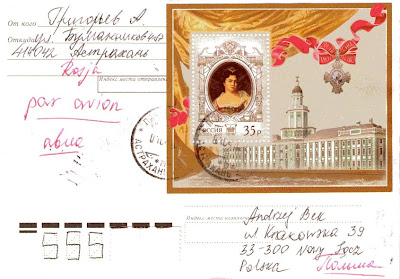 От кого Григорьев А.
Откуда
414042 Астрахань
Rosja
Индекс места отправления
par avion
авиа
РОССИЯ
35р
АСТРАХАНЬ
Индекс места назначения
Andrzej Bek
ul Krakowska 39
33-300 Nowy Sącz
Polska Польша